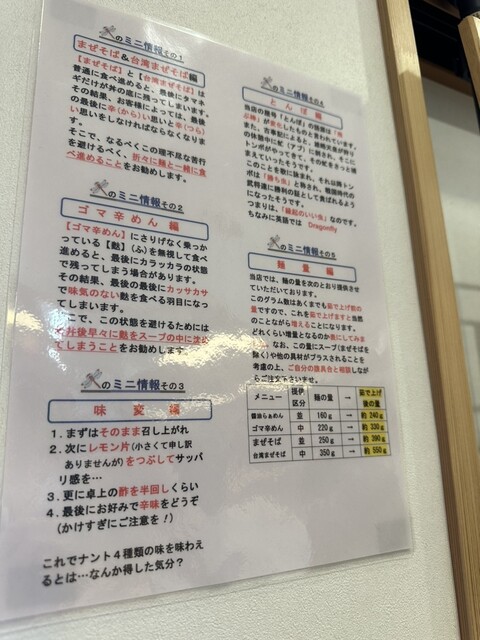 のミニ情報その1
まぜそば&台湾まぜそば編
【まぜそば】と【台湾まぜそば】は
普通に食べ進めると、最後にタマネ
ギだけが丼の底に残ってしまいます。
その結果、お客様によっては、最後
の最後に辛(から)い思いと辛(つら)
い思いをしなければならなくなりま
す。
そこで、なるべくこの理不尽な苦行
を避けるべく、折々に麺と一緒に食
べ進めることをお勧めします。
のミニ情報その2
ゴマ辛めん 編
【ゴマ辛めん】にさりげなく乗っか
っている【麩】(ふ)を無視して食べ
進めると、最後にカラッカラの状態
で残ってしまう場合があります。
その結果、最後の最後にカッサカサ
で味気のない麩を食べる羽目になっ
てしまいます。
こで、この状態を避けるためには
早々に麩をスープの中に沈め
てしまうことをお勧めします。
のミニ情報その3
味 変 編
1.まずはそのまま召し上がれ
2.次にレモン片(小さくて申し訳
ありませんが)をつぶしてサッパ
リ感を…
3.更に卓上の酢を半回しくらい
4.最後にお好みで辛味をどうぞ
(かけすぎにご注意を!)
これでナント4種類の味を味わえ
るとは…なんか得した気分?
のミニ情報その4
とんぼ 編
当店の屋号「とんぼ」の語源は「飛
ぶ棒」が変化したものと言われています。
また、古事記によると、雄略天皇が狩り
の休憩中に虻(アブ)に刺され、そこに
トンボがやってきて、その虻をさっと捕
まえていったそうです。
このことを歌に詠まれ、それ以降トン
ボは「勝ち虫」と称され、戦国時代の
武将達に勝利の証として喜ばれるよう
になったそうです。
つまりは、「縁起のいい虫」なのです。
ちなみに英語では Dragonfly
のミニ情報その5
麺 量 編
当店では、麺の量を次のとおり提供させ
ていただいております。
このグラム数はあくまでも茹で上げ前の
量ですので、これを茹で上げますと当然
のことながら増えることになります。
どれくらい増量となるのか表にしてみま
なお、この量にスープ(まぜそばを
除く)や他の具材がプラスされることを
考慮の上、ご自分の腹具合と相談しなが
らご注文下さいませ。
メニュー 提供区分 麺の量 → 茹で上げ後の量
醤油らぁめん 並 160g → 約 240g
ゴマ辛めん 中 220g → 約 330g
まぜそば 並 250g → 約 390g
台湾まぜそば 中 350g → 約 550g